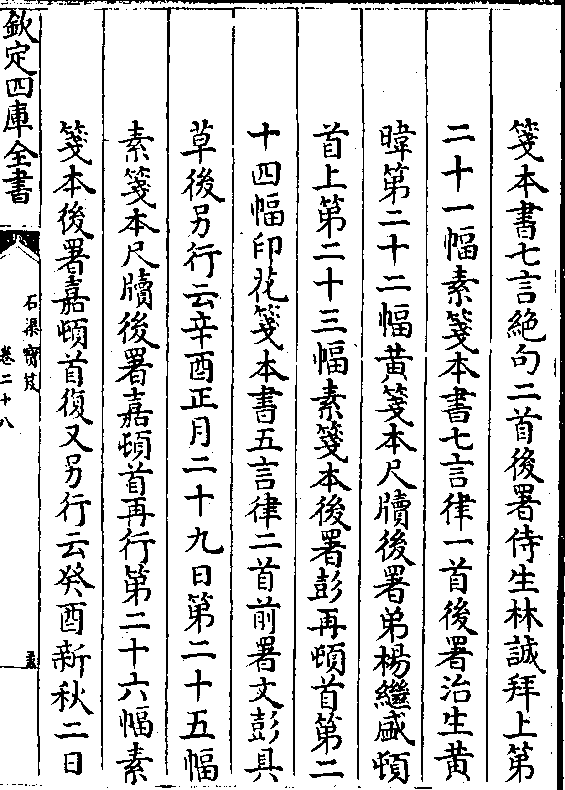 箋本書七言絶句二首後署侍生林誠拜上第
二十一幅素箋本書七言律一首後署治生黄
暐第二十二幅黄箋本尺牘後署弟楊繼盛頓
首上第二十三幅素箋本後署彭再頓首第二
十四幅印花箋本書五言律二首前署文彭具
草後另行云辛酉正月二十九日第二十五幅
素箋本尺牘後署嘉頓首再行第二十六幅素
箋本後署嘉頓首復又另行云癸酉新秋二日
欽定四庫全書
石渠寶笈
卷二十八